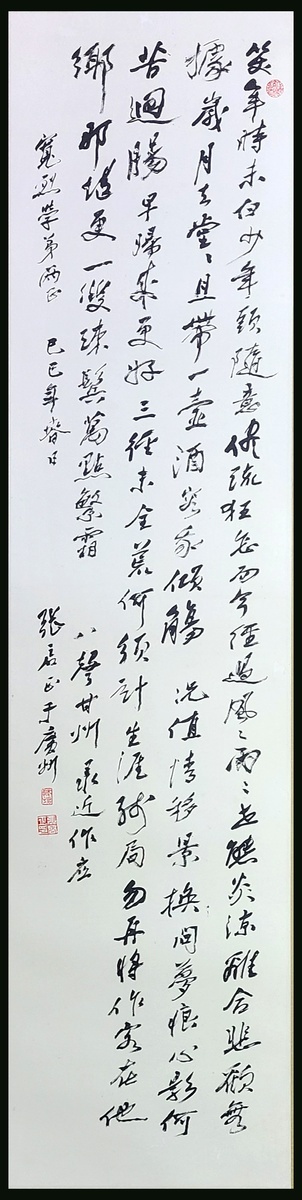 笑年時未白少年頭隨意儘疏狂忽而今經過風〻雨〻世態炎涼離合悲歡無
據歲月去堂〻且帶一壺酒容我傾觴 況值情移景換問夢痕心影何
苦迴腸早歸來更好三徑未全荒何須計生涯殘局勿再將作客在他
鄉那堪更一雙疎鬢萬點繁霜
八聲甘州 录近作应
寬烈榮弟兩正 己巳年春日 張 于廣州